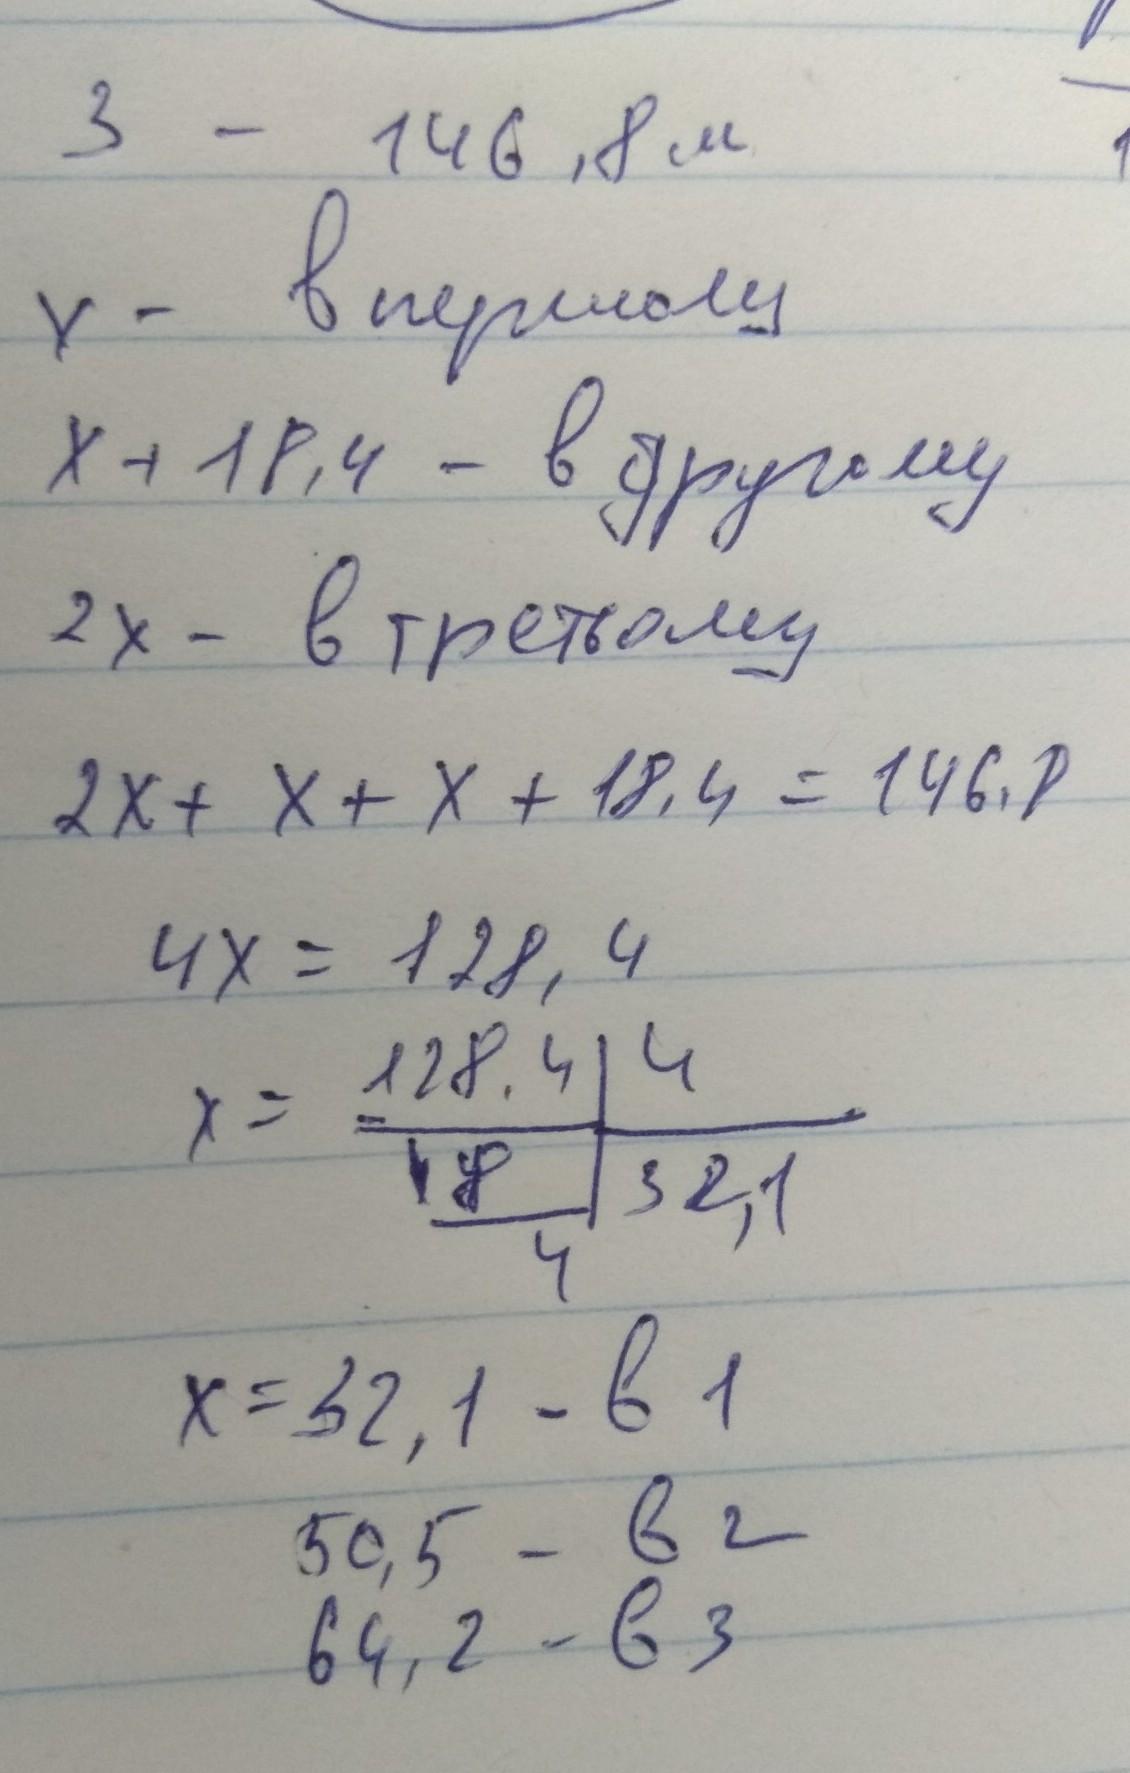 3 - 146,8 м
x - в першому
x + 18,4 - в другому
2x - в третьому
2x + x + x + 18,4 = 146,8
4x = 128,4
x = 128,4 | 4
8 | 32,1
4
x = 32,1 - в 1
50,5 - в 2
64,2 - в 3